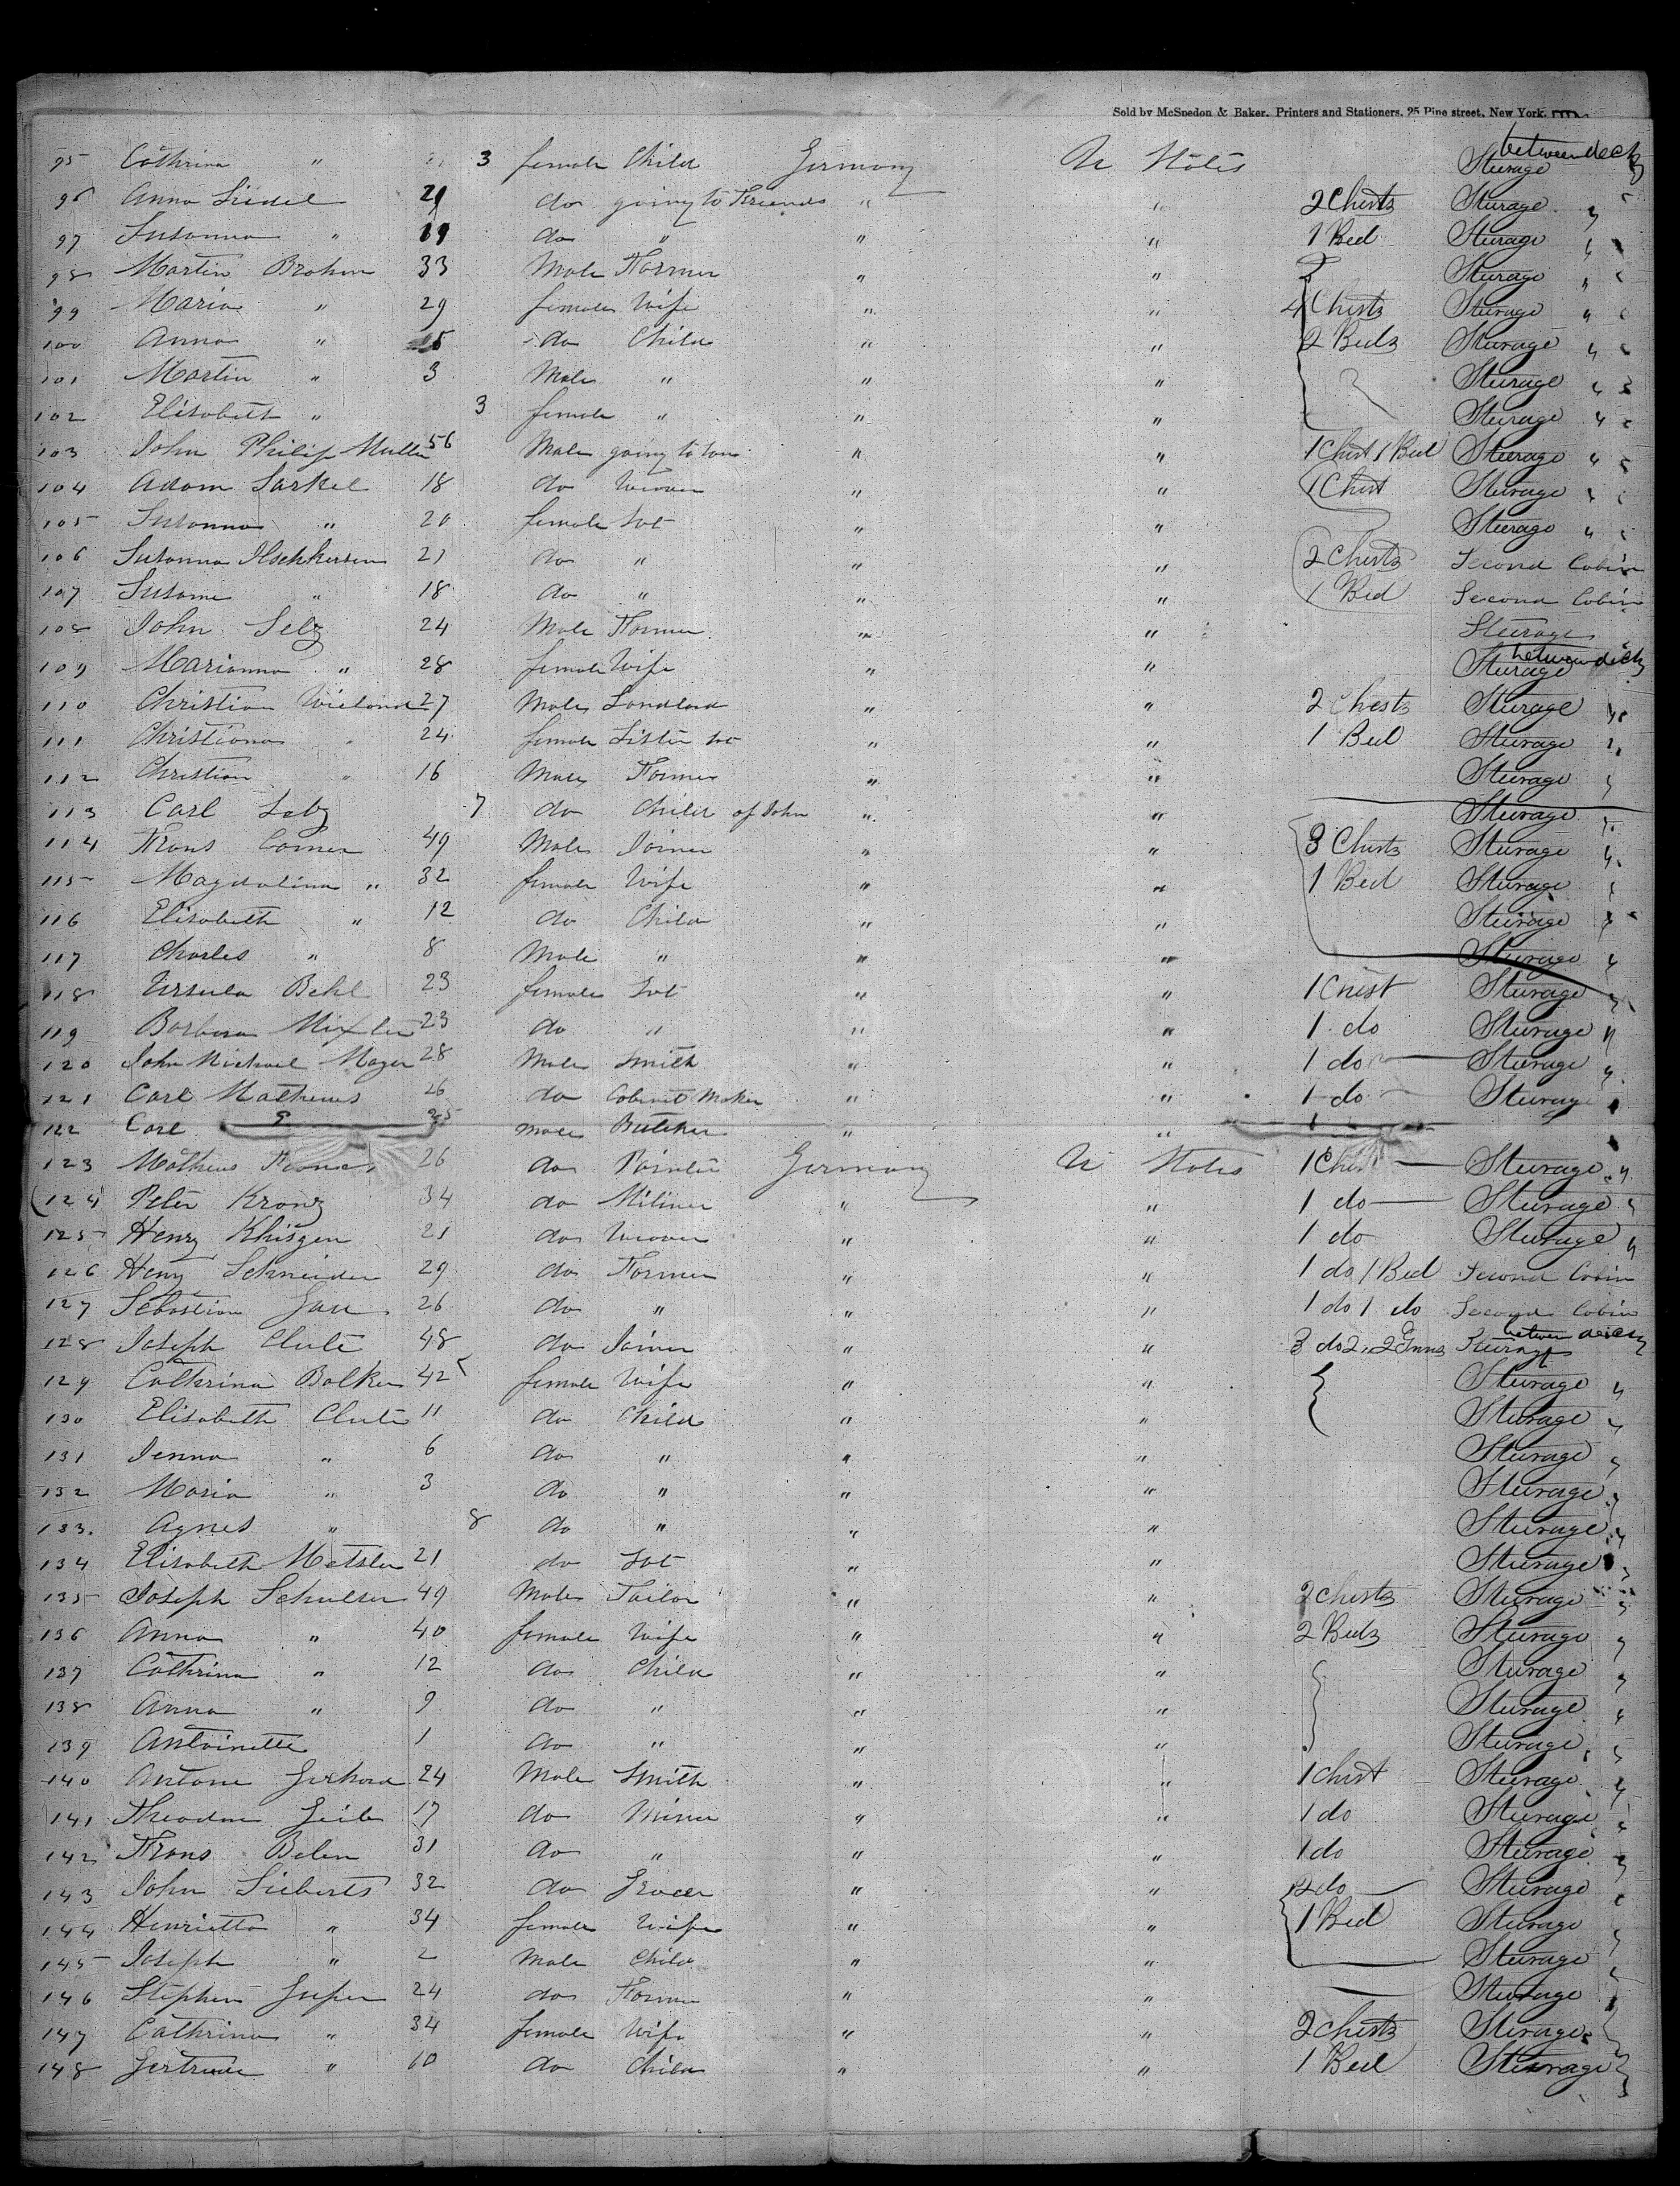 Sold by McSpedon & Baker, Printers and Stationers, 25 Pine street, New York.
95 Cathrina " 3 female Child Germany U States Steerage between deck
96 Anna Siedel 29 do going to Friends " " 2 Chests Steerage "
97 Susanna " 19 do " " " 1 Bed Steerage "
98 Martin Brohm 33 Male Farmer " " Steerage "
99 Maria " 29 female Wife " " 4 Chests Steerage "
100 Anna " 5 do Child " " 2 Beds Steerage "
101 Martin " 3 Male " " " Steerage "
102 Elisabeth " 3 female " " " Steerage "
103 John Philip Muller 56 Male going to " " 1 Chest 1 Bed Steerage "
104 Adam Sarkel 18 do Weaver " " 1 Chest Steerage "
105 Susanna " 20 female Svt " " Steerage "
106 Susanna 21 do " " " 2 Chests Second Cabin
107 Susanna " 18 do " " " 1 Bed Second Cabin
108 John Selz 24 Male Farmer " " Steerage
109 Marianna " 28 female Wife " " Steerage between deck
110 Christian Wieland 27 Male Landlord " " 2 Chests Steerage "
111 Christiana " 24 female Sister Svt " " 1 Bed Steerage "
112 Christian " 16 Male Farmer " " Steerage "
113 Carl Selz 7 do Child of John " " Steerage "
114 Frans Corner 49 Male Joiner " " 3 Chests Steerage "
115 Magdalina " 32 female Wife " " 1 Bed Steerage "
116 Elisabeth " 12 do Child " " Steerage "
117 Charles " 8 Male " " " Steerage "
118 Ursula Behl 23 female Svt " " 1 Chest Steerage "
119 Barbara Mixler 23 do " " " 1 do Steerage "
120 John Michael Mayer 28 Male Smith " " 1 do Steerage "
121 Carl Matheus 26 do Cabinet Maker " " 1 do Steerage "
122 Carl 25 male Butcher " "
123 Matheus 26 do Painter Germany U States 1 Chest Steerage "
124 Peter Kronz 34 do Miliner " " 1 do Steerage "
125 Henry Khisgen 21 do Weaver " " 1 do Steerage "
126 Henry Schneider 29 do Farmer " " 1 do 1 Bed Second Cabin
127 Sebastian Gau 26 do " " " 1 do 1 do Second Cabin
128 Joseph Clute 48 do Joiner " " 3 do 2 " Steerage between decks
129 Cathrina Balkus 42 female Wife " " Steerage "
130 Elisabeth Clute 11 do Child " " Steerage "
131 Jenna " 6 do " " " Steerage "
132 Maria " 3 do " " " Steerage "
133 Agnes " 8 do " " " Steerage "
134 Elisabeth Metsler 21 do Svt " " Steerage "
135 Joseph Schulser 49 Male Tailor " " 2 Chests Steerage "
136 Anna " 40 female Wife " " 2 Beds Steerage "
137 Cathrina " 12 do Child " " Steerage "
138 Anna " 9 do " " " Steerage "
139 Antoinette 1 do " " " Steerage "
140 Antone Gerhard 24 Male Smith " " 1 Chest Steerage "
141 Theodore Geiler 17 do Miner " " 1 do Steerage "
142 Frans Belen 31 do " " " 1 do Steerage "
143 John Sieberts 32 do Grocer " " 2 do Steerage "
144 Henrietta " 34 female Wife " " 1 Bed Steerage "
145 Joseph " 2 male Child " " Steerage "
146 Stephen Jusen 24 do Farmer " " Steerage "
147 Cathrina " 34 female Wife " " 2 Chests Steerage "
148 Gertrude " 10 do Child " " 1 Bed Steerage "